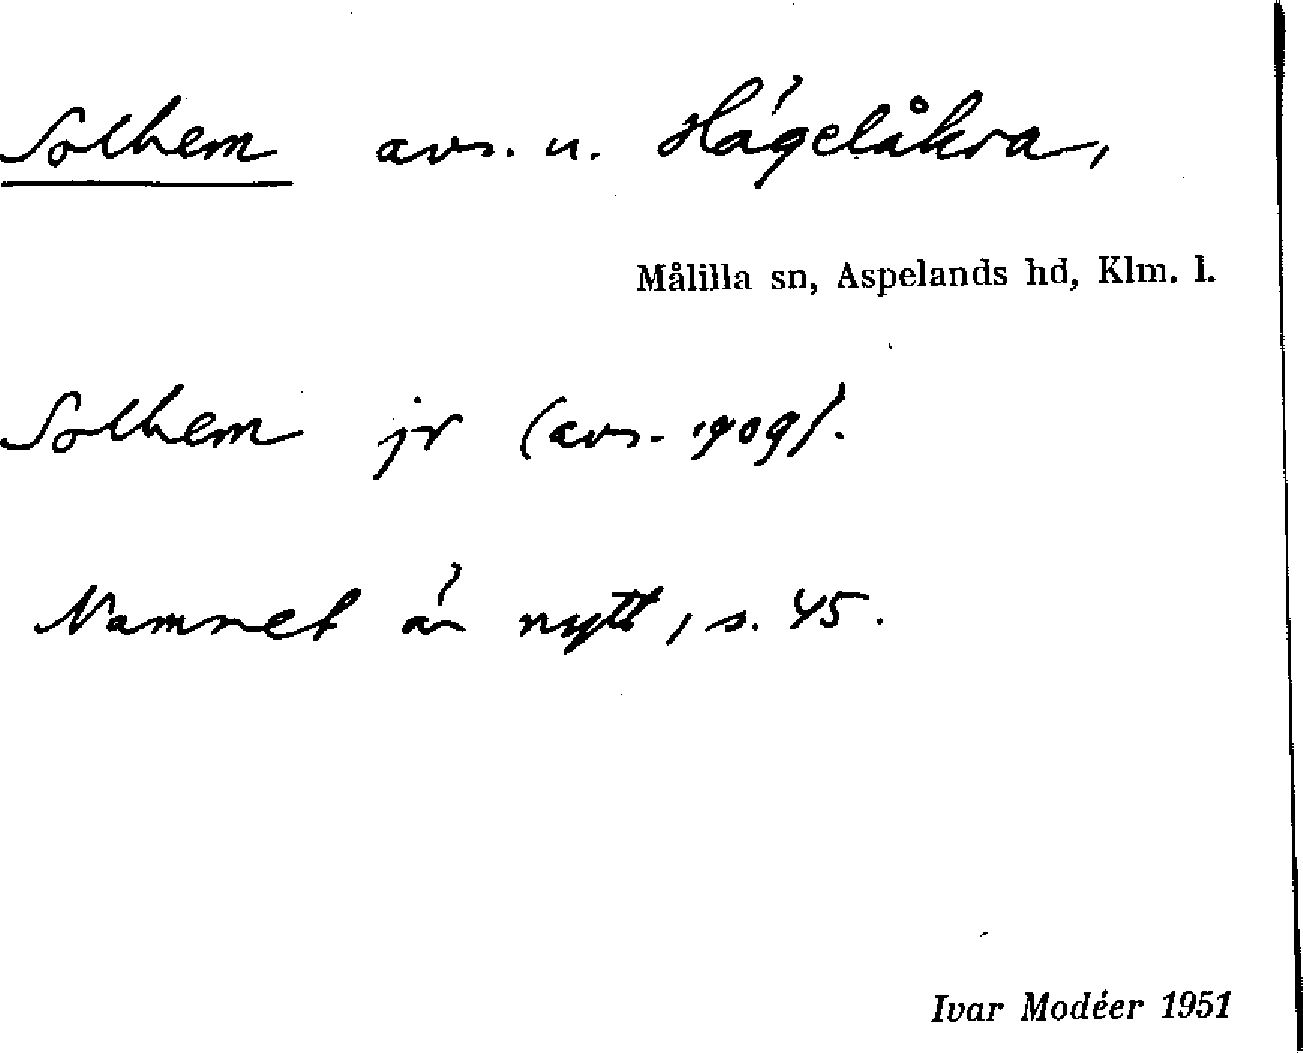 Solhem avs. u. Hägelåkra,
Målilla sn, Aspelands hd, Klm. l.
Solhem jr (avs. 1909).
Namnet är nytt, s. 45.
Ivar Modéer 1951